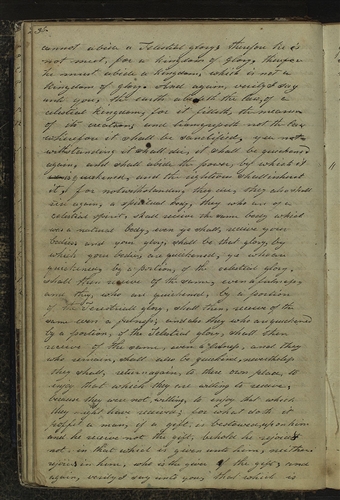 36
cannot abide a Telestial glory, therefore he is
not meet, for a kingdom of glory, therefore
he must abide a kingdom, which is not a
kingdom of glory. And again, verily I say
unto you, the earth abideth the law, of a
celestial kingdom, for it filleth, the measure
of its creation, and transgresseth not the law
wherefore it shall be sanctified, yea not
withstanding it shall die, it shall be quickened
again, and shall abide the power, by which it
is quickened, and the righteous shall inherit
it, for notwithstanding they die, they also shall
rise again, a spiritual body, they who are of a
celestial spirit, shall receive the same body which
was a natural body, even ye shall, receive your
bodies, and your glory, shall be that glory, by
which your bodies, are quickened, ye who are
quickened, by a portion, of the celestial glory,
shall then receive of the same, even a fulness,
and they, who are quickened, by a portion
of the Terestrial glory, shall then, receive of the
same even a fulness; and also they who are quickened
by a portion, of the Telestial glory, shall then
receive of the same, even a fulness, and they
who remain, shall also be quickened, nevertheless
they shall, return again, to there own place, to
enjoy that which they are willing to receive,
because they were not willing, to enjoy that which
they might have received; for what doth it
profit a man, if a gift, is bestowed, upon him
and he receive not the gift, behold he rejoices
not in that which is given unto him, neither
rejoices in him, who is the giver of the gift; and
again, verily I say unto you, that which is